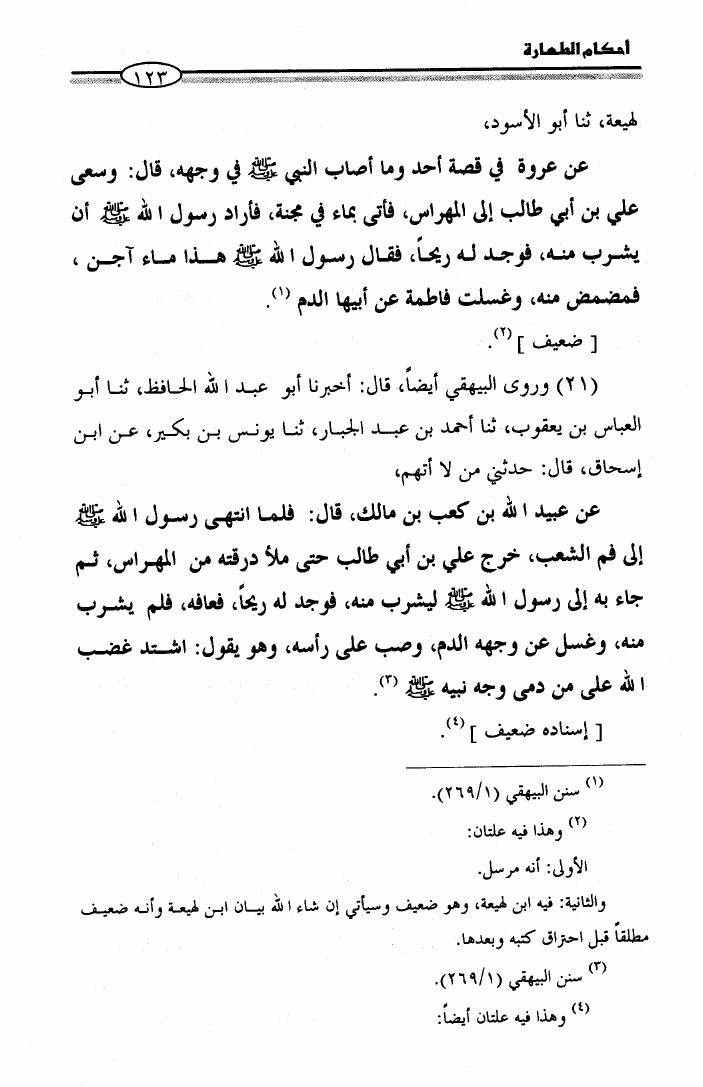 أحكام الطهارة
١٢٣
لهيعة، ثنا أبو الأسود،
عن عروة في قصة أحد وما أصاب النبي ﷺ في وجهه، قال: وسعى
علي بن أبي طالب إلى المهراس، فأتى بماء في مجنة، فأراد رسول الله ﷺ أن
يشرب منه، فوجد له ريحاً، فقال رسول الله ﷺ هذا ماء آجن ،
فمضمض منه، وغسلت فاطمة عن أبيها الدم (١).
[ ضعيف ] (٢).
(٢١) وروى البيهقي أيضاً، قال: أخبرنا أبو عبد الله الحافظ، ثنا أبو
العباس بن يعقوب، ثنا أحمد بن عبد الجبار، ثنا يونس بن بكير، عن ابن
إسحاق، قال: حدثني من لا أتهم،
عن عبيد الله بن كعب بن مالك، قال: فلما انتهى رسول الله ﷺ
إلى فم الشعب، خرج علي بن أبي طالب حتى ملأ درقته من المهراس، ثم
جاء به إلى رسول الله ﷺ ليشرب منه، فوجد له ريحاً، فعافه، فلم يشرب
منه، وغسل عن وجهه الدم، وصب على رأسه، وهو يقول: اشتد غضب
الله على من دمى وجه نبيه ﷺ (٣).
[ إسناده ضعيف ] (٤).
(١) سنن البيهقي (٢٦٩/١).
(٢) وهذا فيه علتان:
الأولى: أنه مرسل.
والثانية: فيه ابن لهيعة، وهو ضعيف وسيأتي إن شاء الله بيان ابن لهيعة وأنه ضعيف
مطلقاً قبل احتراق كتبه وبعدها.
(٣) سنن البيهقي (٢٦٩/١).
(٤) وهذا فيه علتان أيضاً: